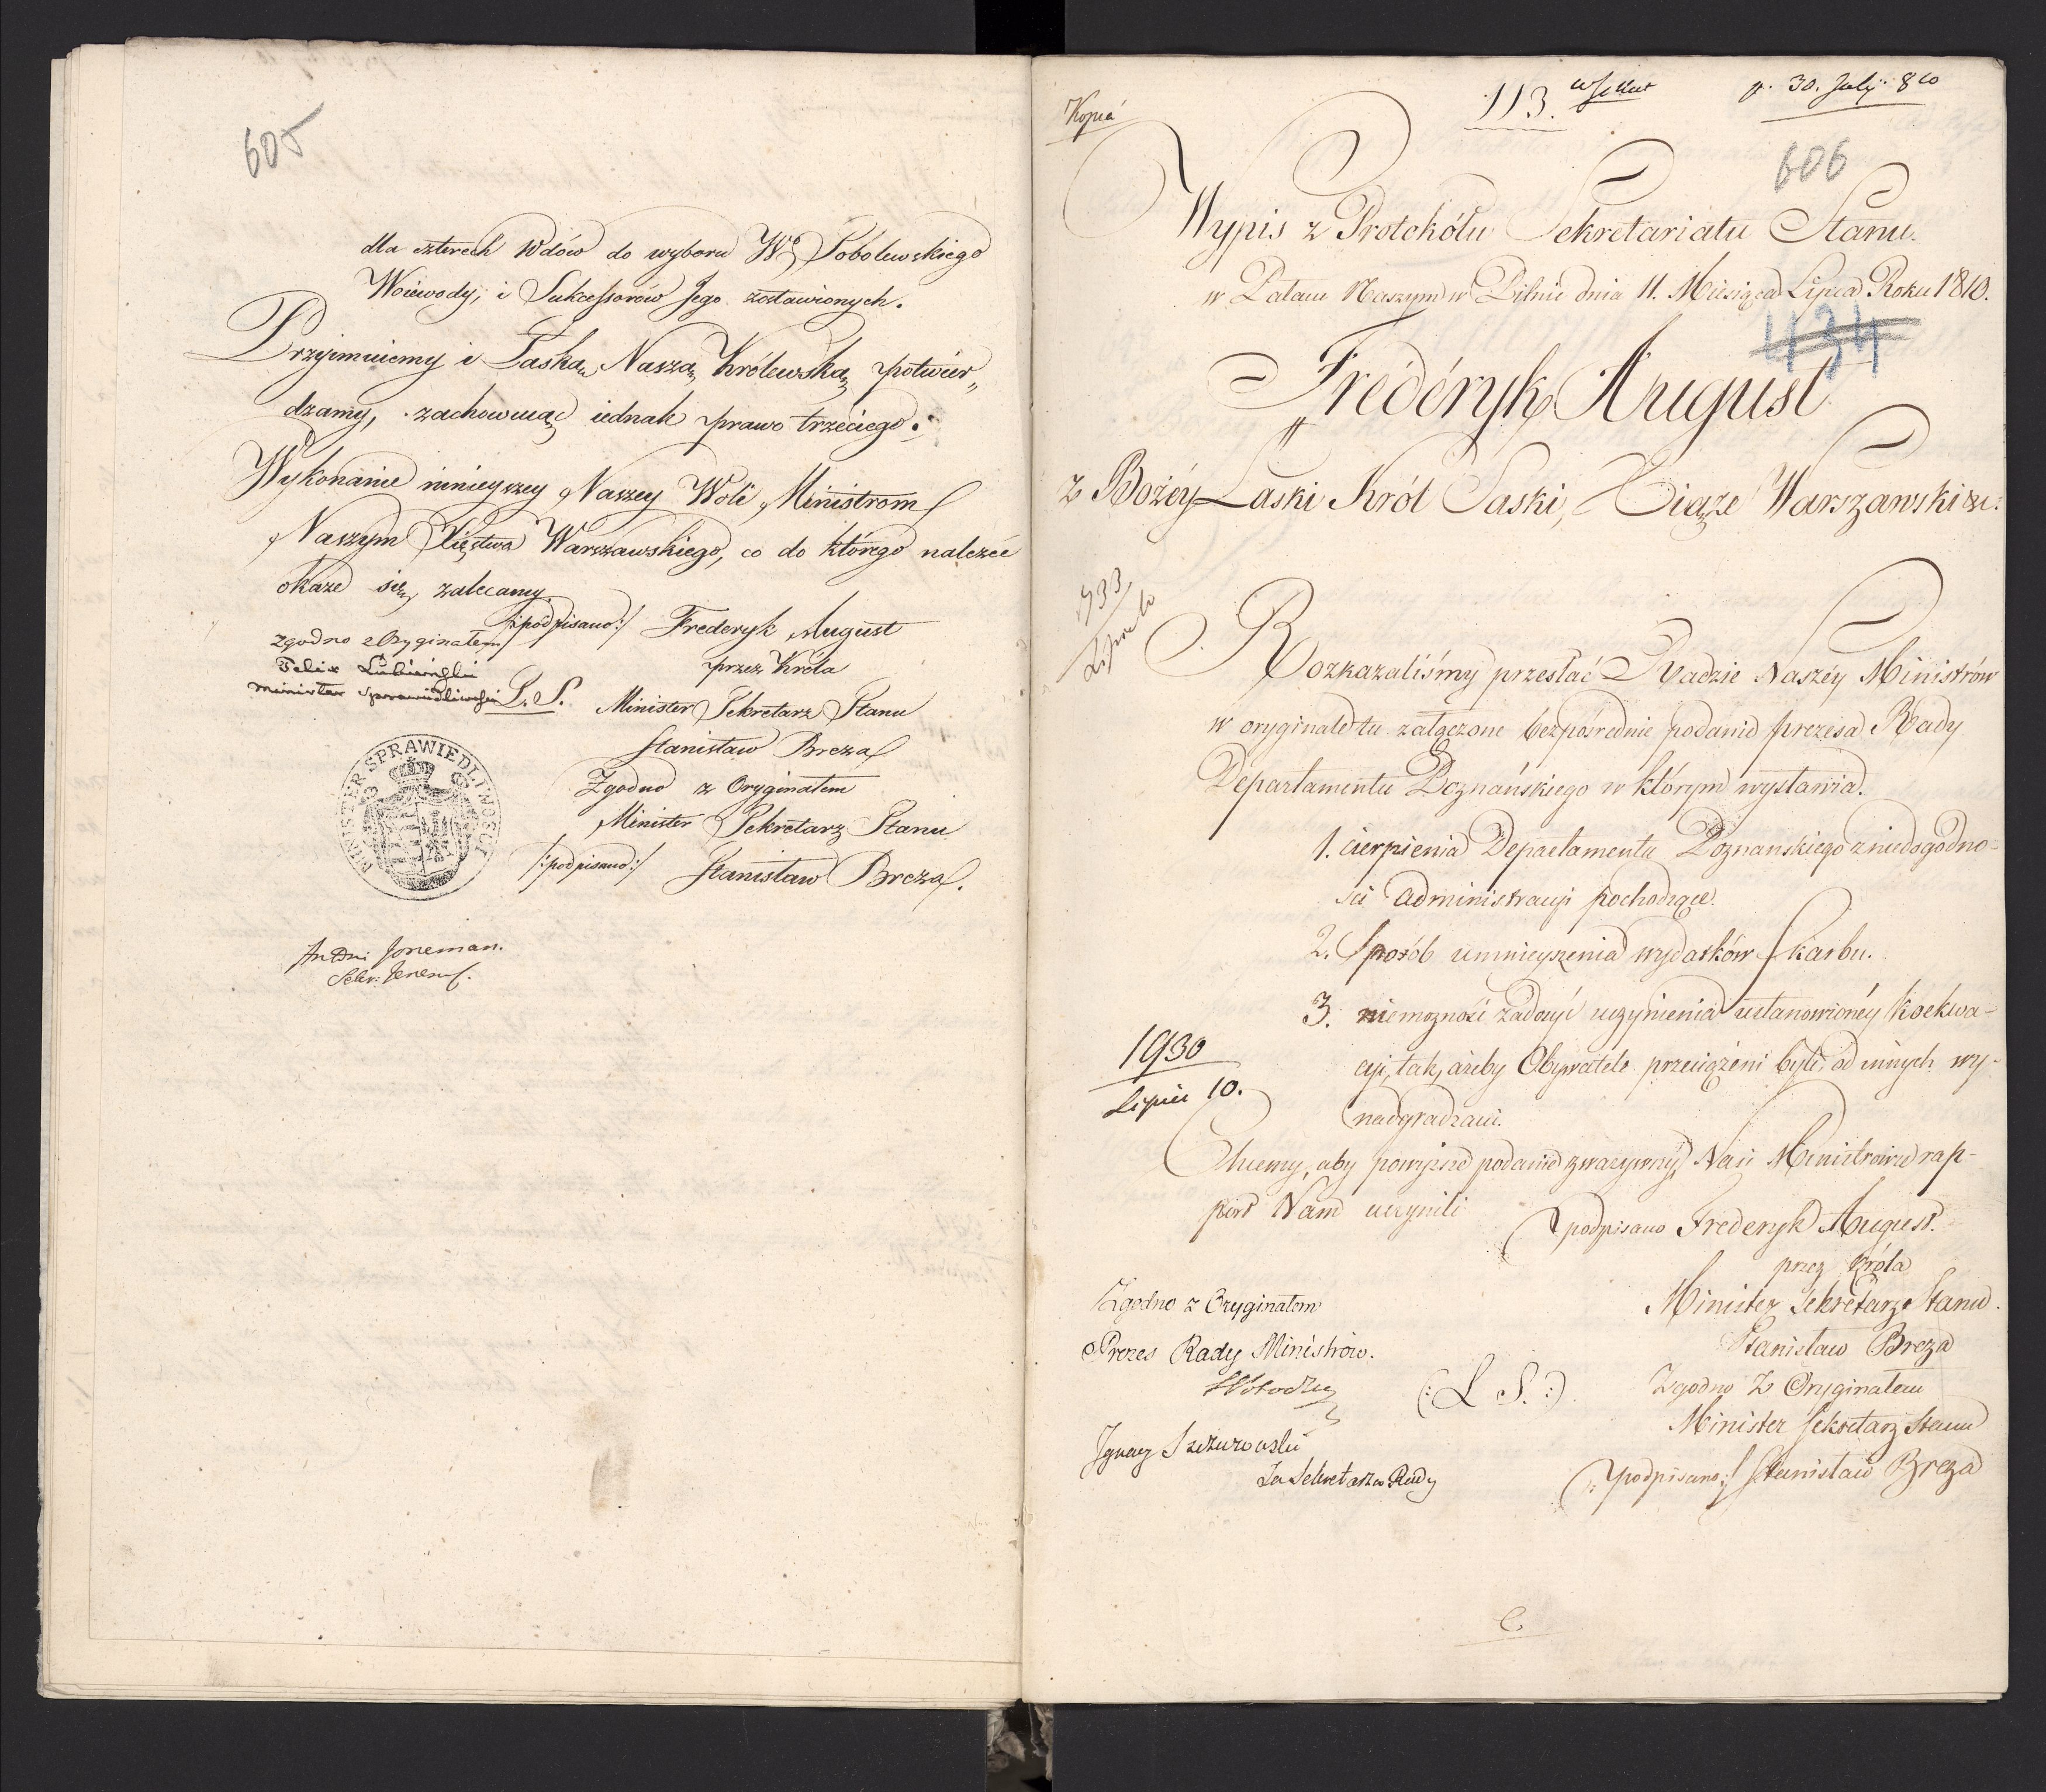 605
dla czterech Wdów do wyboru Wo Sobolewskiego
Woiewody, i Sukcessorów Jego zostawionych.
Przyimuiemy i Łaską Naszą Królewską potwier„
dzamy, zachowuiąc iednak prawo trzeciego.
Wykonanie ninieyszey Naszey Woli Ministrom
Naszym Xięstwa Warszawskiego, co do którego należeć
okaże się, zalecamy.
/:podpisano:/ Frederyk August
przez Króla
Minister Sekretarz Stanu
Stanisław Breza
Zgodno z Oryginałem
Minister Sekretarz Stanu
/:podpisano:/ Stanisław Breza.
zgodno z Oryginałem
Felix Lubieński
Minister Sprawiedliwości L. S.
MINISTER SPRAWIEDLIWOSCI
Joneman.
Sekr: Jeneral.
Kopia
113.
p. 30. July 810
606
Wypis z Protokółu Sekretariatu Stanu.
w Pałacu Naszym w Pilnie dnia 11. Miesiąca Lipca Roku 1810.
434
Fréderyk August
z Bożéy Łaski Król Saski, Xiąże Warszawski &c:
1933
Rozkazaliśmy przesłać Radzie Naszéy Ministrów
w oryginale tu załączone bezpośrednie podanie prezesa Rady
Departamentu Poznańskiego w którym wystawia.
1. cierpienia Departamentu Poznanskiego z niedogodno-
ści administracyi pochodzące.
2. Sposób umnieyszenia wydatków Skarbu.
3. niemożność zadosyć uczynienia ustanowionéy koekwa-
cyi, tak, ażeby Obywatele przeciążeni byli od innych wy-
nadgradzani.
1930
Lipiec 10.
Chcemy, aby powyższe podanie zważywszy, Nasi Ministrowie rap-
port Nam uczynili
podpisano Frederyk August.
przez Króla
Minister Sekretarz Stanu.
Stanisław Breza
Zgodno z Oryginałem
Prezes Rady Ministrów.
(: L S. :)
Zgodno z Oryginałem
Minister Sekretarz Stanu
(:podpisano:/ Stanisław Breza
Ignacy Szczurowski
Za Sekretarza Rady